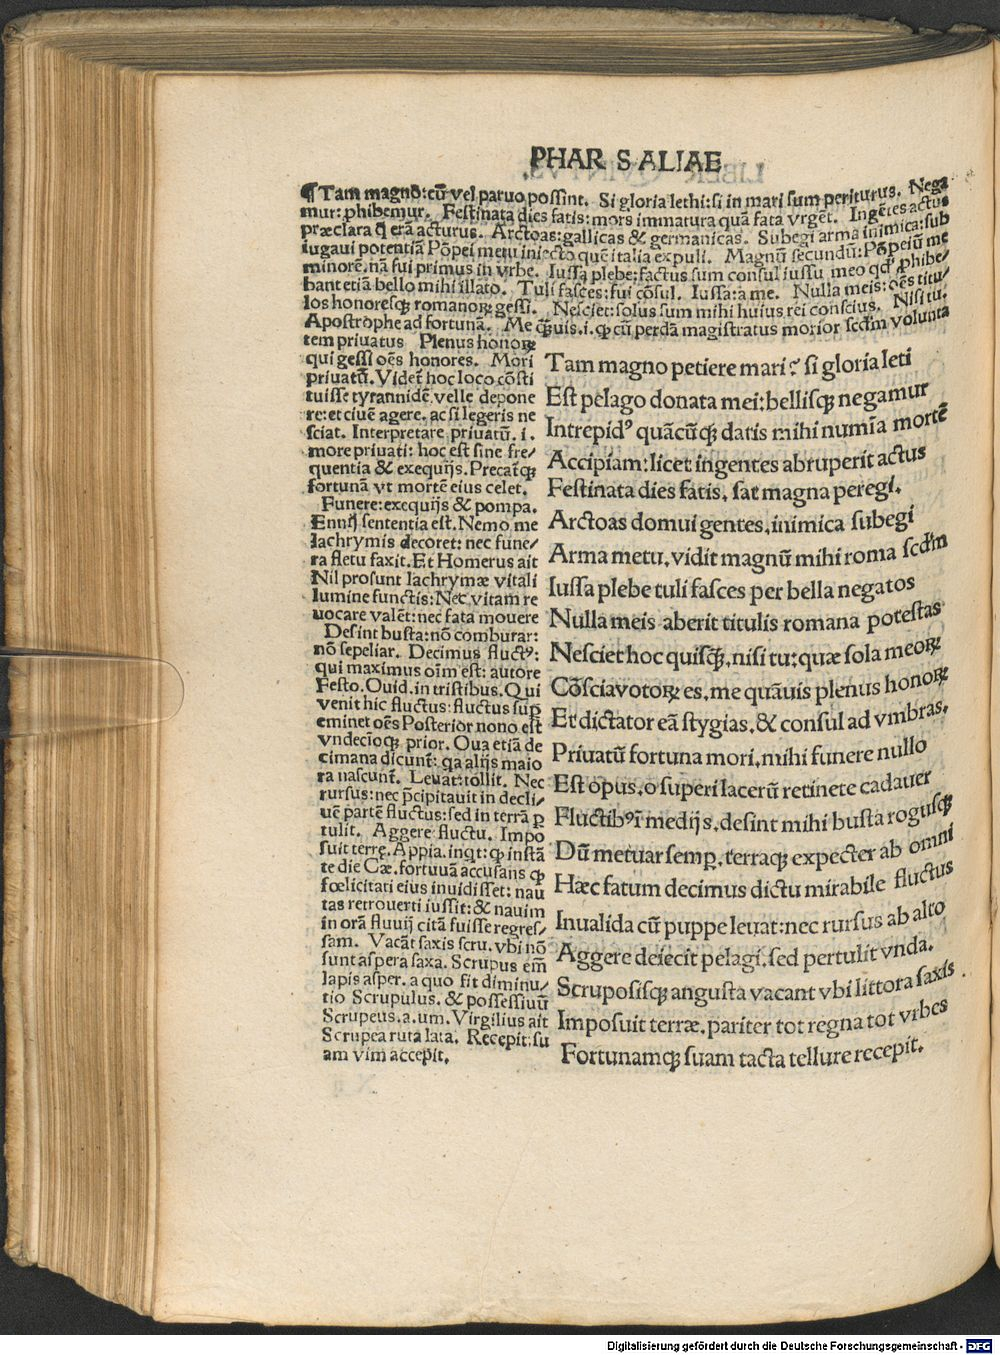 PHARSALIAE
¶Tam magno: cū vel paruo possint. Si gloria lethi: si in mari sum periturus. Nega
mur: ꝓhibemur. Festinata dies fatis: mors immatura quā fata vrgēt. Ingētes actus
præclara q̄ erā acturus. Arctoas: gallicas & germanicas. Subegi arma inimica: sub
iugaui potentiā Pōpei metu iniecto quē italia expuli. Magnū secundū: Pōpeiū me
minorē, nā fui primus in vrbe. Iussa plebe: factus sum consul iussu meo qd̄ ꝓhibe/
bant etiā bello mihi illato. Tuli fasces: fui cōsul. Iussa: a me. Nulla meis: oēs titu/
los honoresqꝫ romanoꝝ gessi. Nesciet: solus sum mihi huius rei conscius. Nisi tu.
Apostrophe ad fortunā. Me quāuis .i. ꝙ cū perdā magistratus morior scđm volunta
tem priuatus Plenus honoꝝ
qui gessi oēs honores. Mori
priuatū. Videt̄ hoc loco cōsti
tuisse tyrannidē velle depone
re: et ciuē agere. ac si legeris ne
sciat. Interpretare priuatū. i.
more priuati: hoc est sine fre/
quentia & exequijs. Precat̄qꝫ
fortunā vt mortē eius celet.
Funere: exequijs & pompa.
Ennij sententia est. Nemo me
lachrymis decoret: nec fune/
ra fletu faxit. Et Homerus ait
Nil prosunt lachrymæ vitali
lumine functis: Nec vitam re
uocare valēt: nec fata mouere
Desint busta: nō comburar:
nō sepeliar. Decimus fluctꝰ:
qui maximus oīm est: autore
Festo. Ouid. in tristibus. Qui
venit hic fluctus: fluctus suꝑ
eminet oēs Posterior nono est
vndecīoqꝫ prior. Oua etiā de
cimana dicunt̄: qa alijs maio
ra nascunt̄. Leuat: tollit. Nec
rursus: nec p̄cipitauit in decli/
uē partē fluctus: sed in terrā ꝑ
tulit. Aggere fluctu. Impo
suit terrę. Appia. inqt: ꝙ instā
te die Cæ. fortuuā accusans ꝙ
fœlicitati eius inuidisset: nau
tas retrouerti iussit: & nauim
in orā fluuij citā fuisse regres/
sam. Vacāt saxis scru. vbi nō
sunt aspera saxa. Scrupus em̄
lapis asper. a quo fit diminu/
tio Scrupulus. & possessiuū
Scrupeus. a. um. Virgilius ait
Scrupea ruta lata. Recepit: su
am vim accepit.
Tam magno petiere mari? si gloria leti
Est pelago donata mei: bellisqꝫ negamur
Intrepidꝰ quācūqꝫ datis mihi numīa mortē
Accipiam: licet ingentes abruperit actus
Festinata dies fatis, sat magna peregi.
Arctoas domui gentes, inimica subegi
Arma metu, vidit magnū mihi roma scđm
Iussa plebe tuli fasces per bella negatos
Nulla meis aberit titulis romana potestas
Nesciet hoc quisqꝫ, nisi tu: quæ sola meoꝝ
Cōscia votoꝝ es, me quāuis plenus honoꝝ
Et dictator eā stygias, & consul ad vmbras.
Priuatū fortuna mori, mihi funere nullo
Est opus, o superi lacerū retinete cadauer
Fluctibꝰ ī medijs, desint mihi busta rogusqꝫ
Dū metuar semꝑ, terraqꝫ expecter ab omni
Hæc fatum decimus dictu mirabile fluctus
Inualida cū puppe leuat: nec rursus ab alto
Aggere deiecit pelagi, sed pertulit vnda.
Scruposisqꝫ angusta vacant vbi littora saxis
Imposuit terræ, pariter tot regna tot vrbes
Fortunamqꝫ suam tacta tellure recepit.
Digitalisierung gefördert durch die Deutsche Forschungsgemeinschaft - DFG